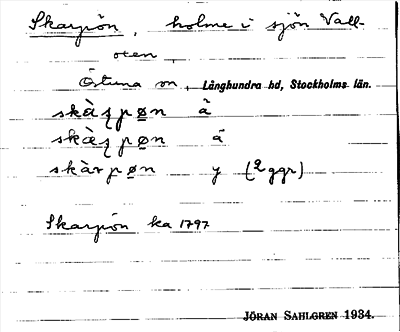 Skarpön, holme i sjön Vall-
oxen,
Östuna sn, Långhundra hd, Stockholms län.
skàʂpøn ä
skàʂpøn ä
skàrpøn y (2 ggr)
Skarpön ka 1797
JÖRAN SAHLGREN 1934.